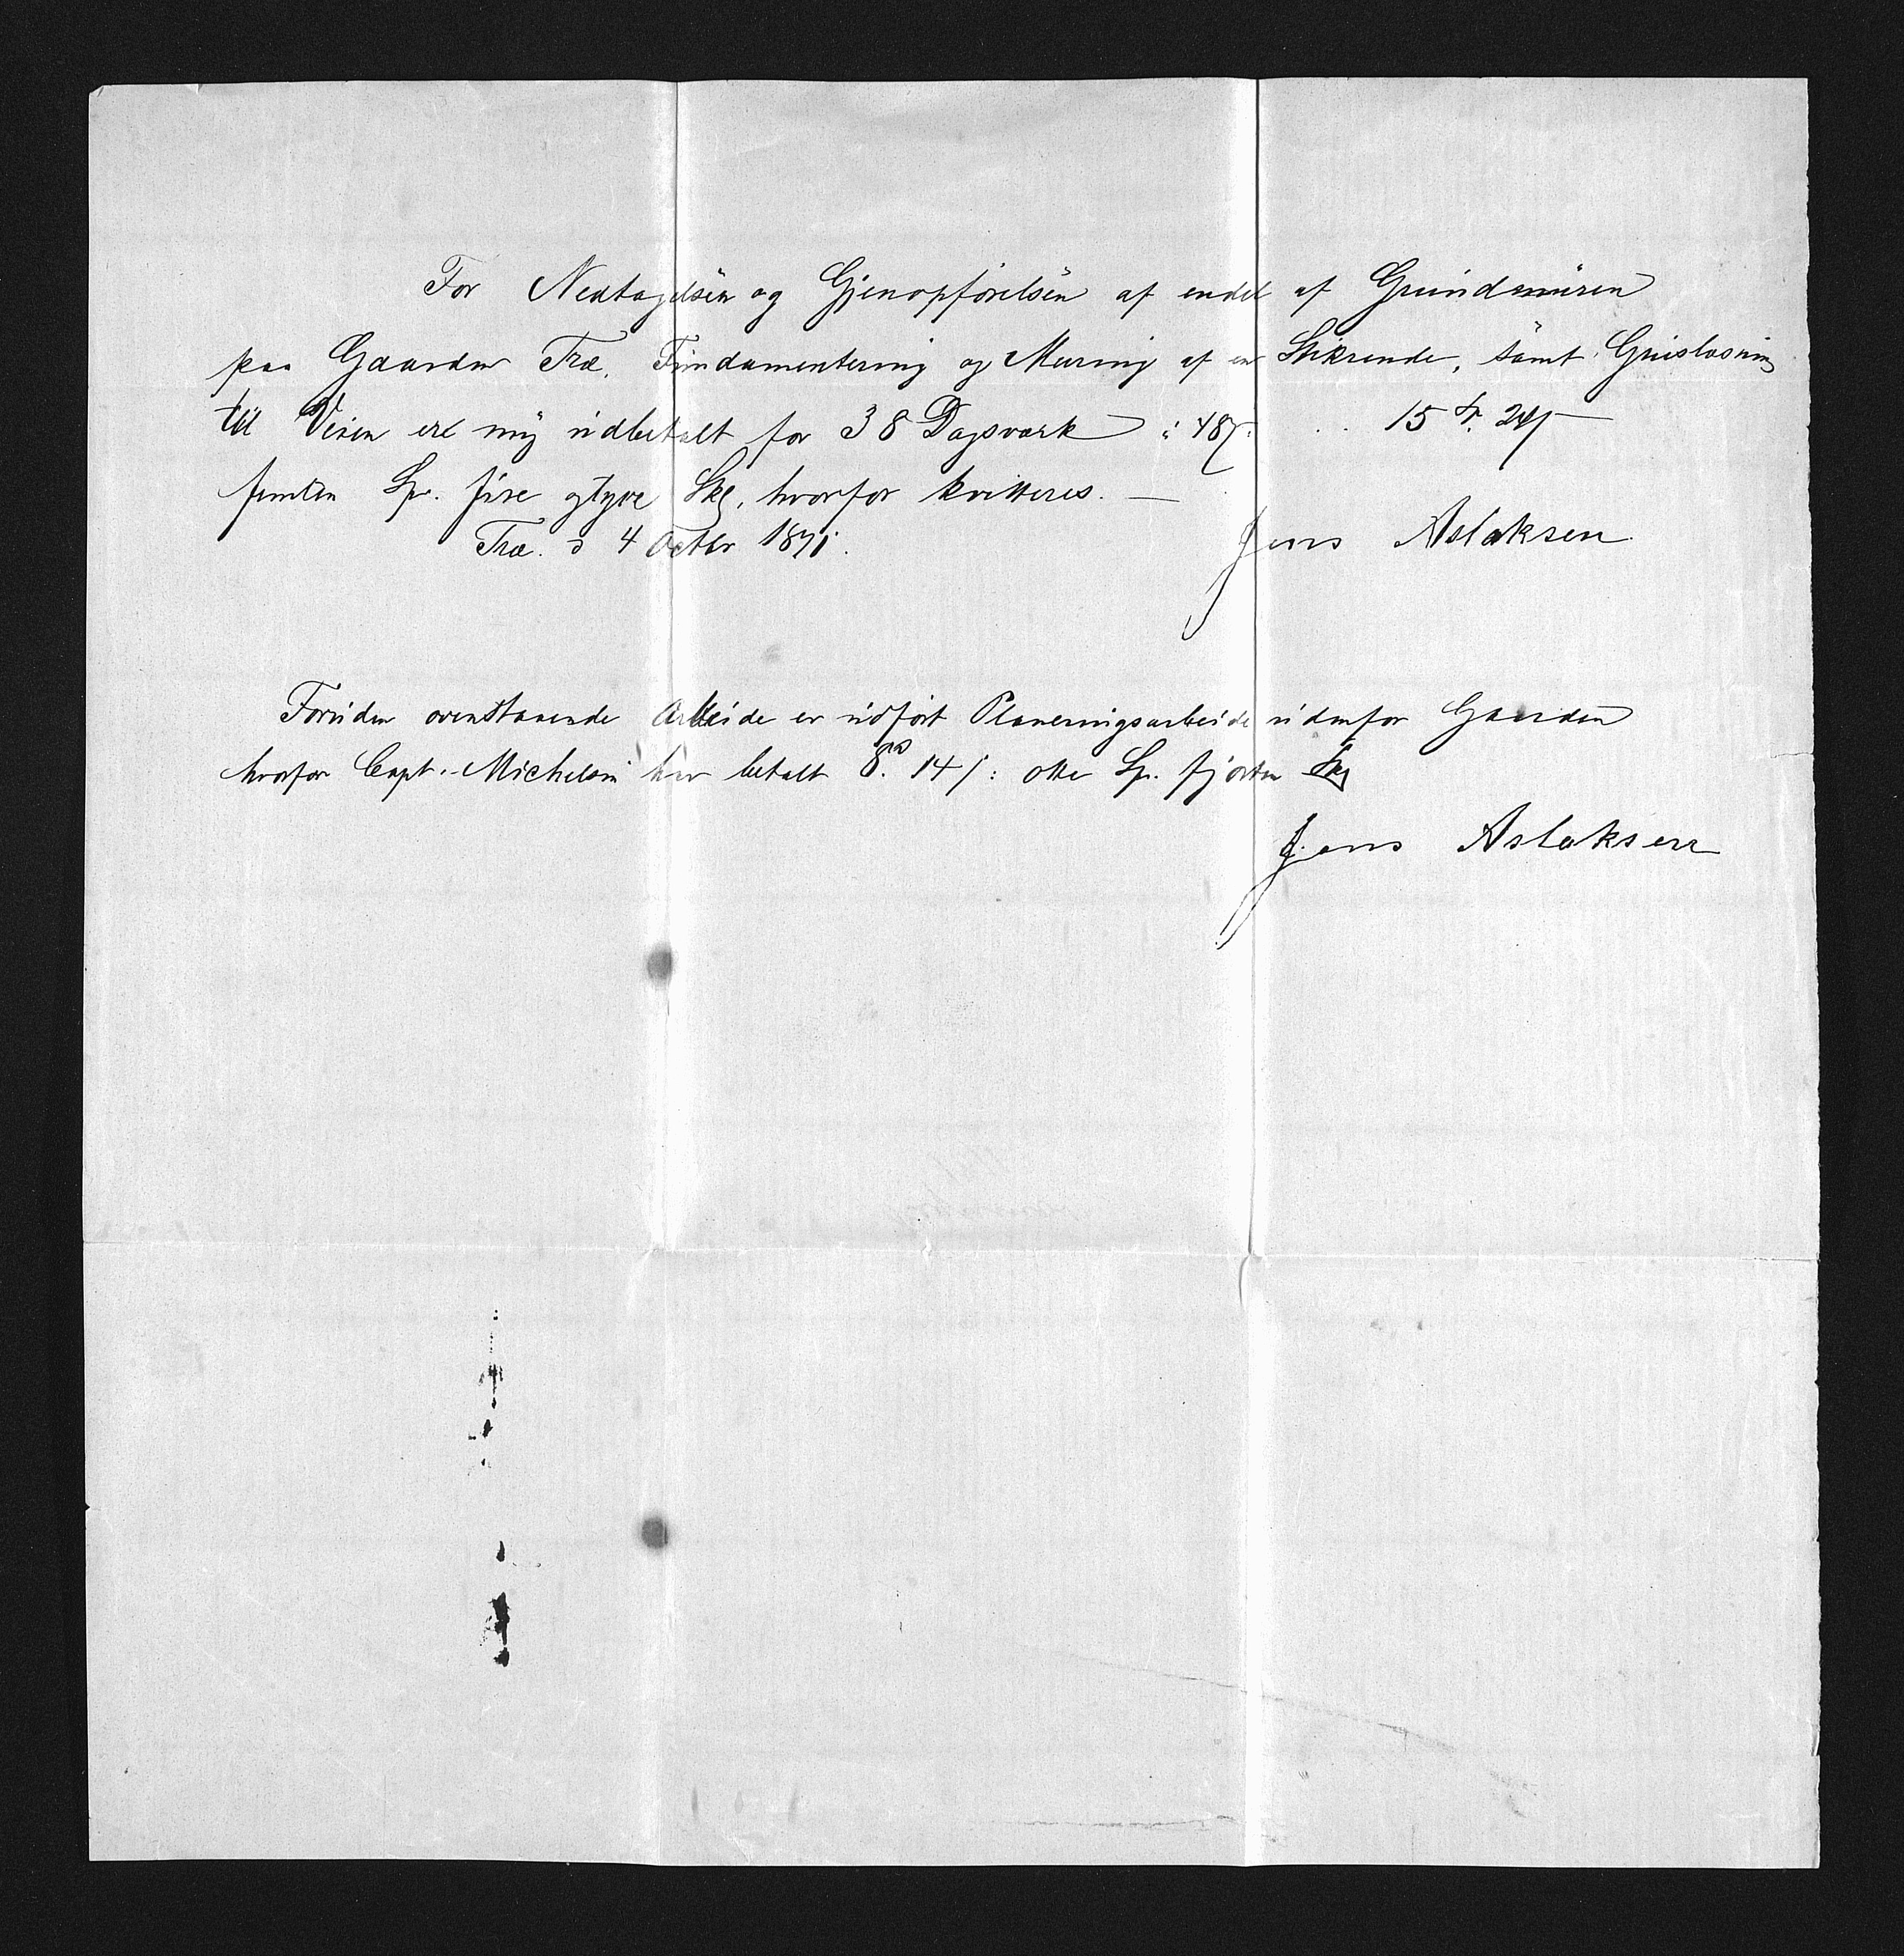 For Nedtagelsen og Gjenopførelsen af endel af Grundmuren
paa Gaarden Træ, Fundamentering og Muring af en Stikrende, samt Gruslosning
til Veien ere mig udbetalt for 38 Dagsværk à 48 /: .. 15 Sp. 24 /
femten Sp. fire og tyve Skl, hvorfor kvitteres. —
Træ. d 4 Octbr 1871.
Jens Aslaksen
Foruden ovenstaaende Arbeide er udført Planeringsarbeide udenfor Gaarden
hvorfor Capt. Michelsen har betalt 8 Sp. 14 /: otte Sp. fjorten Skl
Jens Aslaksen